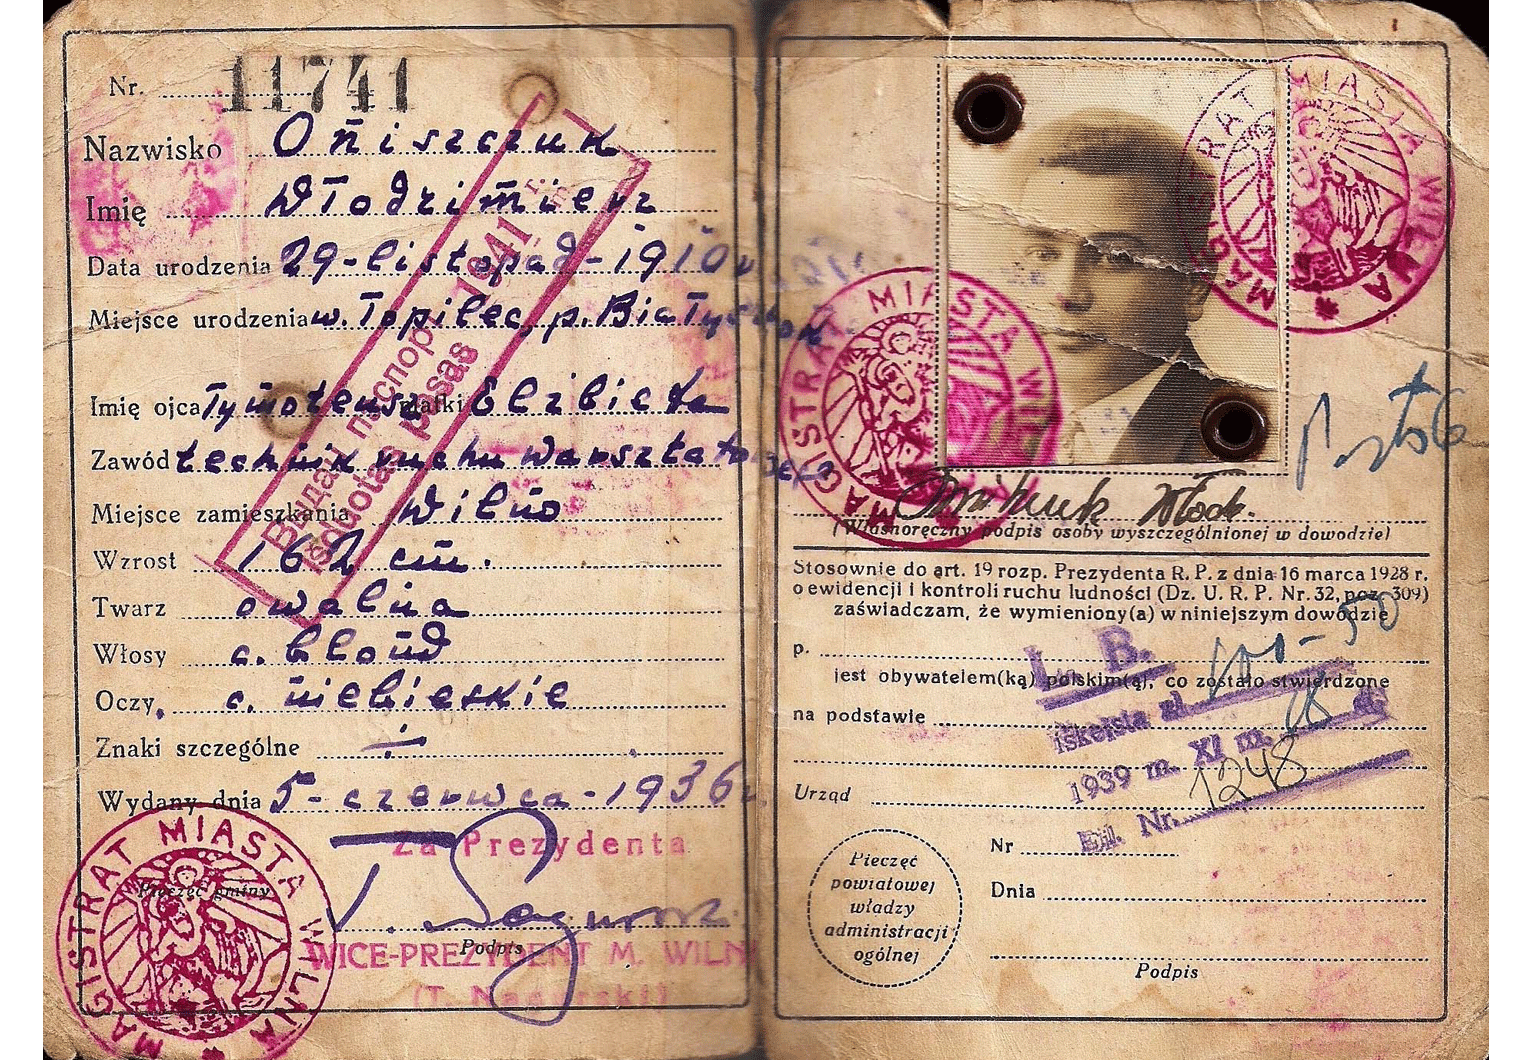 Nr. 11741
Nazwisko Oniszczuk
Imię Włodzimierz
Data urodzenia 29-listopad-1910
Miejsce urodzenia w. Topilec, p. Białystok
Imię ojca Tymoteusz matki Elżbieta
Zawód technik ruchu warsztatowego
Miejsce zamieszkania Wilno
Wzrost 162 cm.
Twarz owalna
Włosy c. blond
Oczy c. niebieskie
Znaki szczególne
Wydany dnia 5-czerwca-1936
Выдан паспорт 1941 г.
Išduotas pasas
MAGISTRAT MIASTA WILNA
Pieczęć gminy
Za Prezydenta
Podpis
WICE-PREZYDENT M. WILN
(T. Nagurski)
MAGISTRAT MIASTA WILNA
MAGISTRAT MIASTA WILNA
(Własnoręczny podpis osoby wyszczególnionej w dowodzie)
Stosownie do art. 19 rozp. Prezydenta R. P. z dnia 16 marca 1928 r.
o ewidencji i kontroli ruchu ludności (Dz. U. R. P. Nr. 32, poz. 309)
zaświadczam, że wymieniony(a) w niniejszym dowodzie
p.
jest obywatelem(ką) polskim(ą), co zostało stwierdzone
na podstawie
L. B.
iškeista
1939 m. XI m. d.
Eil. Nr. 1248
Urząd
Nr
Dnia
Pieczęć
powiatowej
władzy
administracji
ogólnej
Podpis